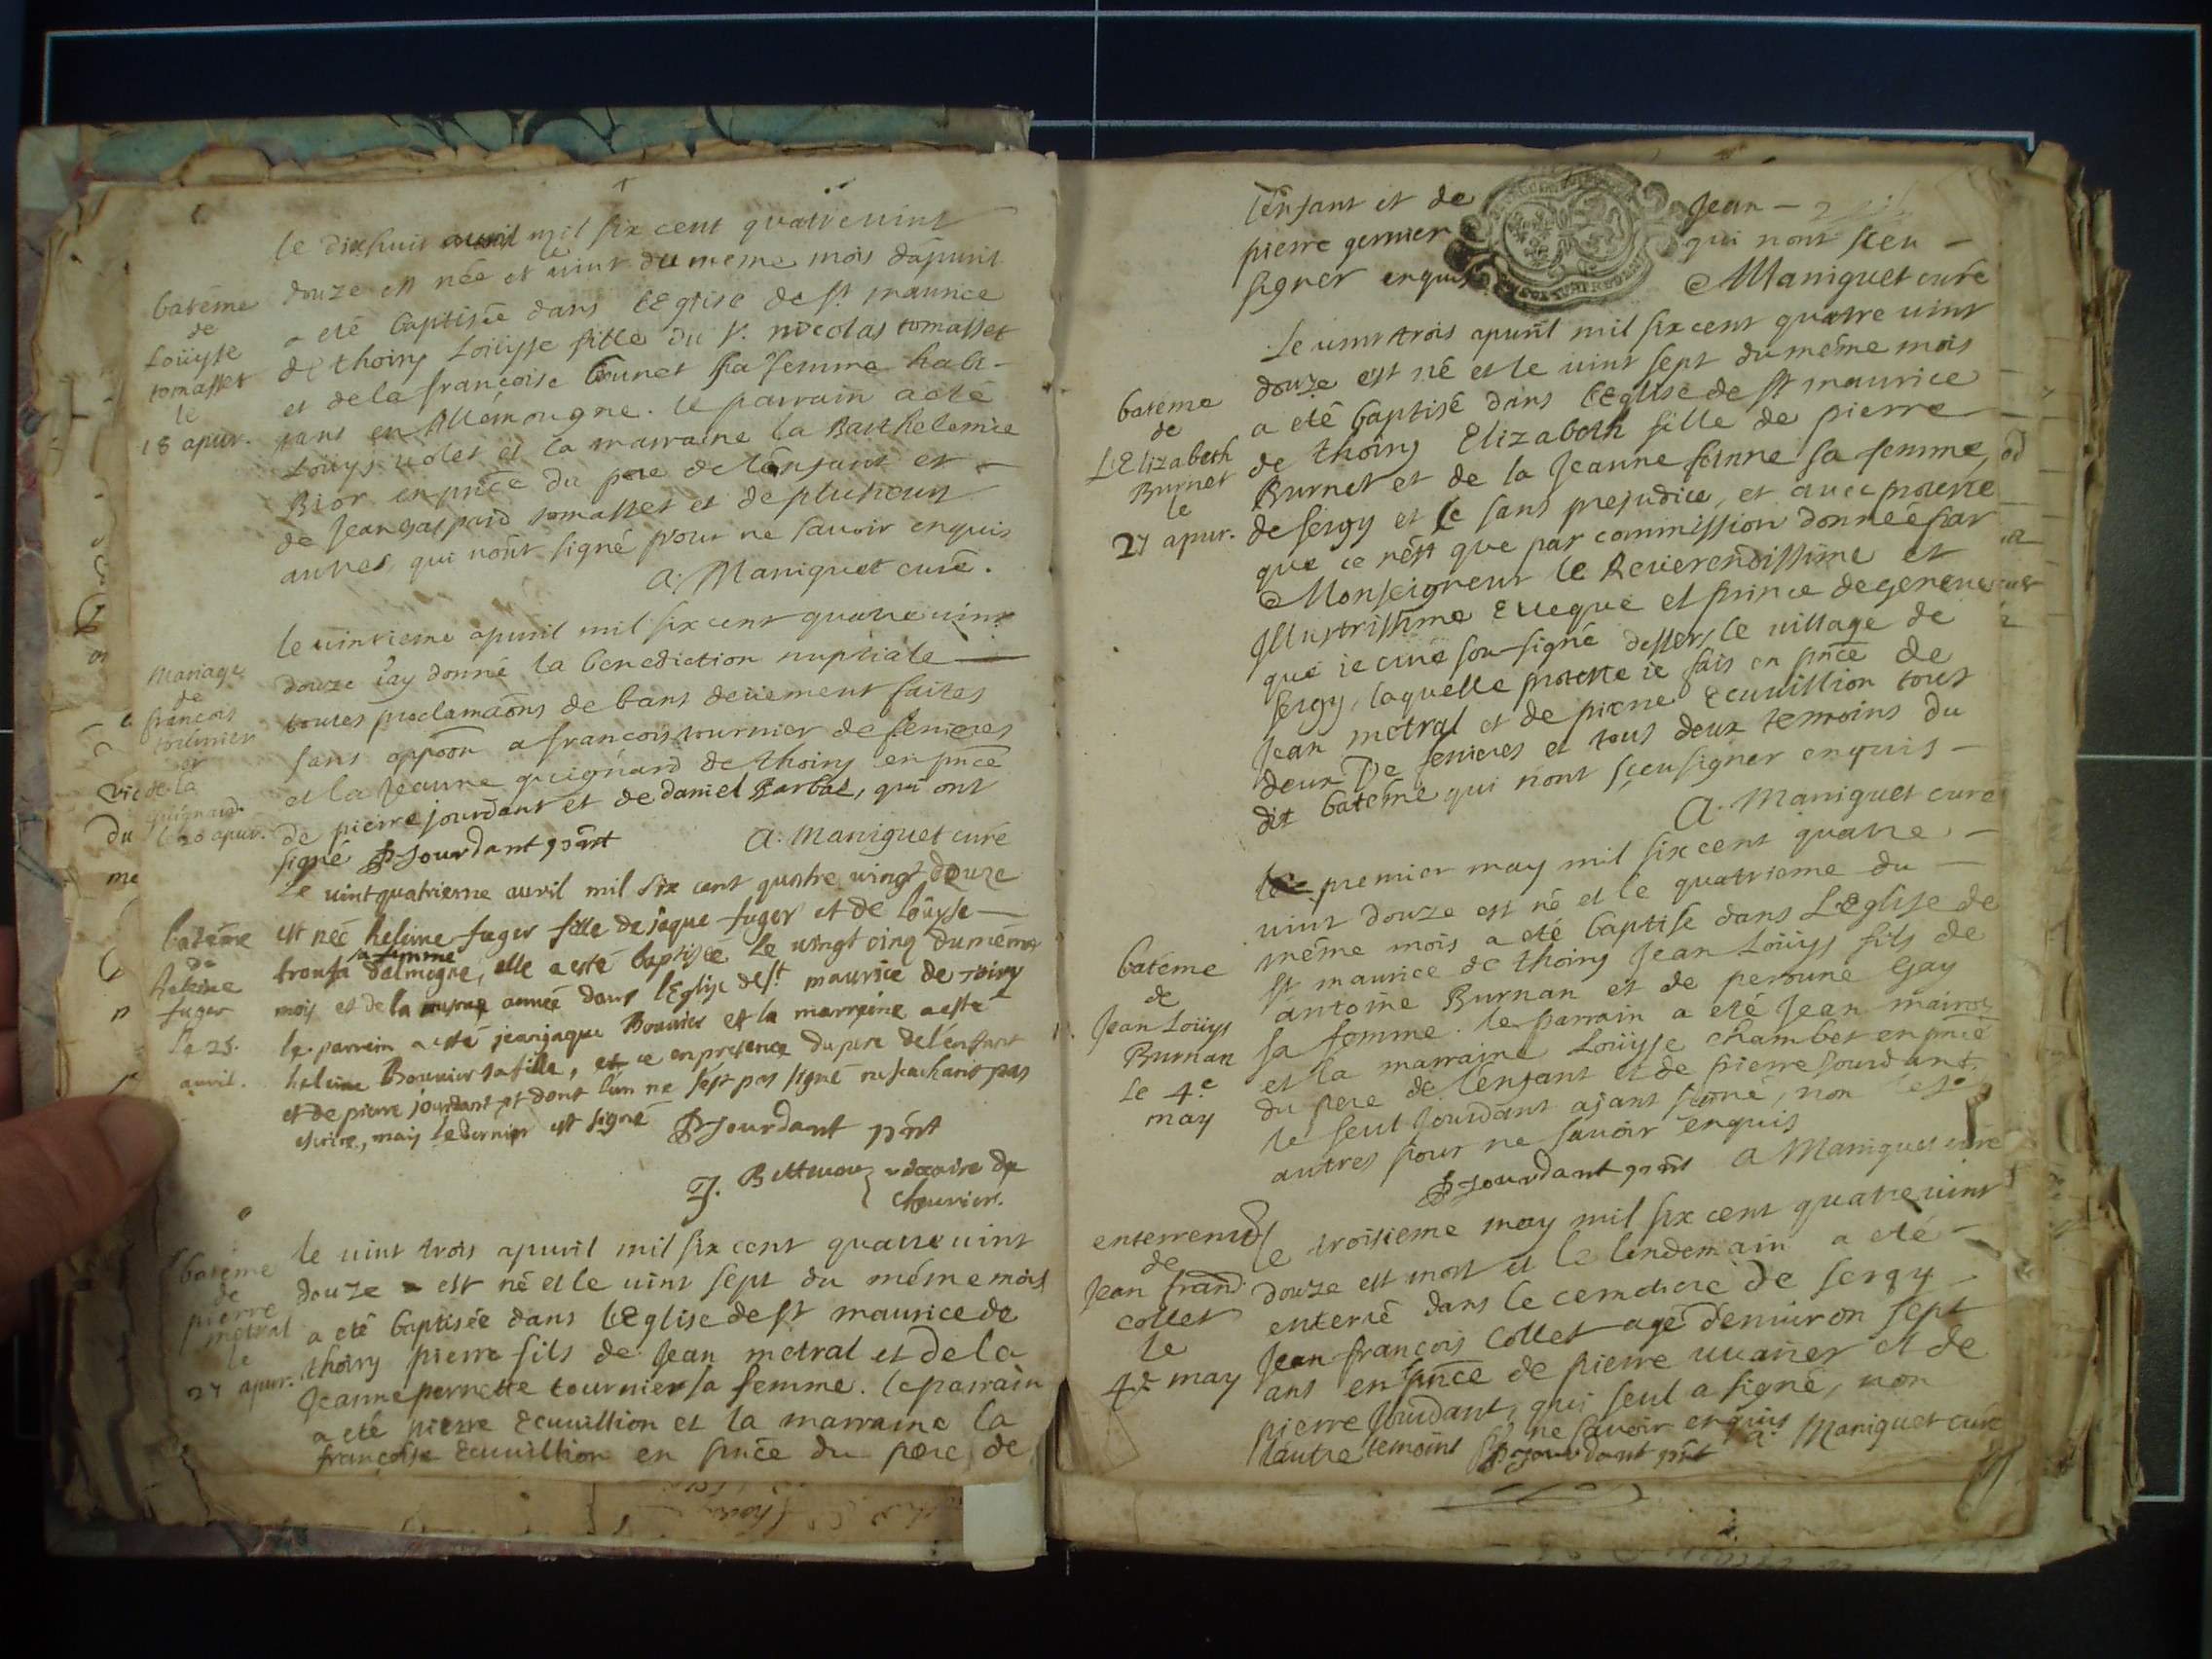 le dixhuit auril mil six cent quatreuint
douze est née et le uint du meme mois d'apuril
a eté baptisée dans l'Eglise de st maurice
de thoiry Loüyse fille du s. nicolas tomasset
et de la françoise brunet sa femme habi-
tans en Allemougne. le parrain a eté
Loüys uolet et la marraine la Barthelemie
Bior en pñce du pere de l'enfant et
de Jean gaspard tomasset et de plusieurs
autres, qui n'ont signé pour ne sauoir enquis
A. Maniguet curé.
batéme
de
Loüyse
tomasset
le
18 apur.
le uintieme apuril mil six cent quatre uint
douze i'ay donné la benediction nuptiale
toutes proclamaõns de bans deüement faites
sans oppõon a francois tournier de fenieres
et la Jeanne guignard de thoiry en pñce
de pierre jourdant et de daniel Barbas, qui ont
signé PJourdant pñt A. Maniguet curé
Mariage
de
francois
tournier
et
de la
guignard
le 20 apur.
Le uintquatrieme auril mil six cent quatre uingt douze
est neé heleine fuger fille de jaque fuger et de loüyse
sa femme
d'almogne, elle a esté baptisée le uingt cinq du méme
mois et de la mesme année dans l'Eglise de st maurice de Toiry
le parrein a esté jean jaque Bouuier et la marreine a esté
heleine Bouuier sa fille, et ce en presence du pere de l'enfant
et de pierre jourdant et dont l'un ne s'est pas signé ne scachant pas
escrire, mais le dernier est signé PJourdant pñt
J. uicaire de
batéme
de
heleine
fuger
le 25.
auril.
le uint trois apuril mil six cent quatre uint
douze est né et le uint sept du méme mois
a eté baptisée dans l'Eglise de st maurice de
thoiry pierre fils de Jean metral et de la
Jeanne pernette tournier sa femme. le parrain
a eté pierre Ecuuillion et la marraine la
françoise Ecuuillion en pñce du pere de
batéme
de
pierre
metral
le
27 apur.
l'enfant et de Jean
pierre gernier qui n'ont sceu
signer enquis Maniguet curé
Le uint trois apuril mil six cent quatre uint
douze est né et le uint sept du méme mois
a eté baptisé dans l'Eglise de st maurice
de thoiry Elizabeth fille de pierre
Burnet et de la Jeanne sa femme,
de sergy et ce sans prejudice, et auec proteste
que ce n'est que par commission donneé par
Monseigneur le Reuerendissime et
Illustrissime Eueque et prince de geneue
que ie curé sou-signé dessers le uillage de
sergy, laquelle proteste ie fais en pñce de
Jean metral et de pierre Ecuuillion tous
deux de fenieres et tous deux temoins du
dit batéme qui n'ont sçeu signer enquis
A. Maniguet curé
batéme
de
L'Elizabeth
Burnet
le
27 apur.
le premier may mil six cent quatre
uint douze est né et le quatrieme du
méme mois a eté baptisé dans L'Eglise de
st maurice de thoiry Jean Loüys fils de
antoine Burnan et de peroune Gay
sa femme. le parrain a eté Jean
et la marraine Loüyse chambet en pñce
du pere de l'enfant et de pierre Jourdant
le seul Jourdant ajant signé, non les
autres pour ne sauoir enquis
PJourdant pñt A Maniguet curé
batéme
de
Jean Loüys
Burnan
Le 4e
may
le troisieme may mil six cent quatre uint
douze est mort et le lendemain a eté
enterré dans le cemetiere de sergy
Jean françois Collet agé d'enuiron sept
ans en pñce de pierre et de
pierre Jourdant, qui seul a signé, non
l'autre temoint ne sauoir enquis A. Maniguet curé
PJourdant pñt
enterremt
de
Jean franç
Collet
le
4e may